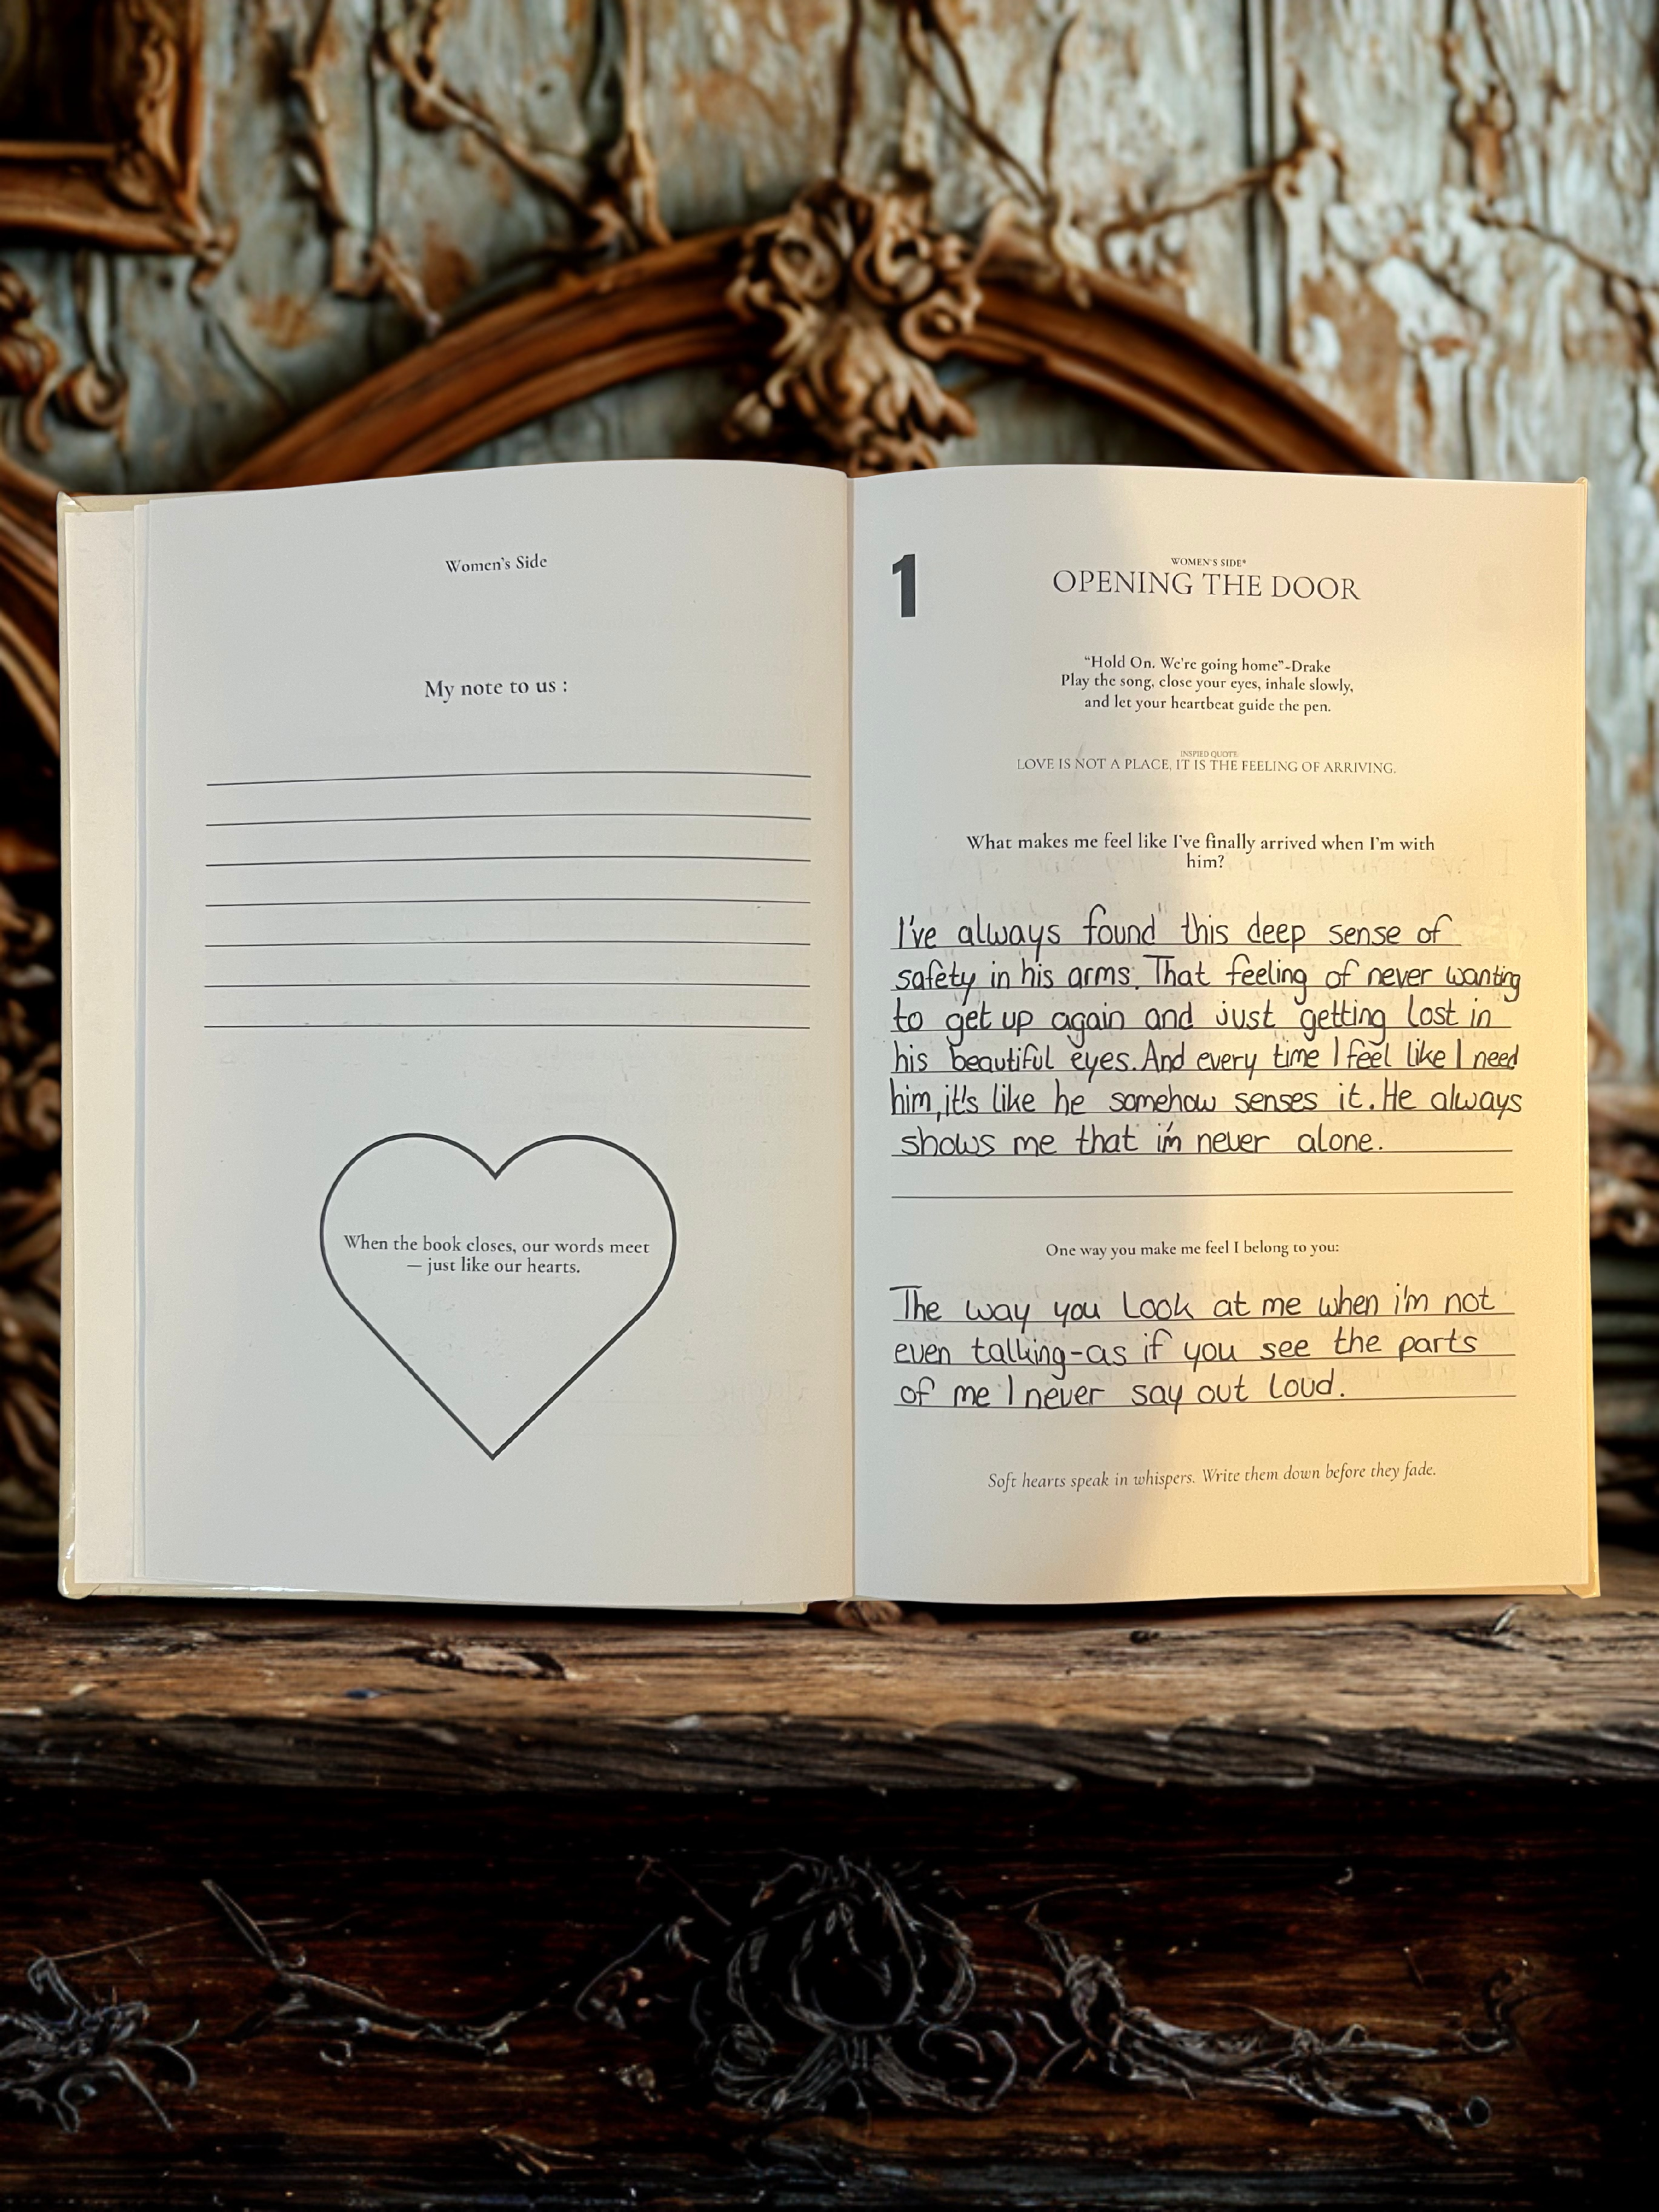 Women's Side
My note to us :
When the book closes, our words meet
— just like our hearts.
1
WOMEN'S SIDE*
OPENING THE DOOR
"Hold On. We're going home"-Drake
Play the song, close your eyes, inhale slowly,
and let your heartbeat guide the pen.
INSPIED QUOTE
LOVE IS NOT A PLACE, IT IS THE FEELING OF ARRIVING.
What makes me feel like I've finally arrived when I'm with
him?
I've always found this deep sense of
safety in his arms. That feeling of never wanting
to get up again and just getting lost in
his beautiful eyes. And every time I feel like I need
him, it's like he somehow senses it. He always
shows me that i'm never alone.
One way you make me feel I belong to you:
The way you look at me when i'm not
even talking-as if you see the parts
of me I never say out loud.
Soft hearts speak in whispers. Write them down before they fade.